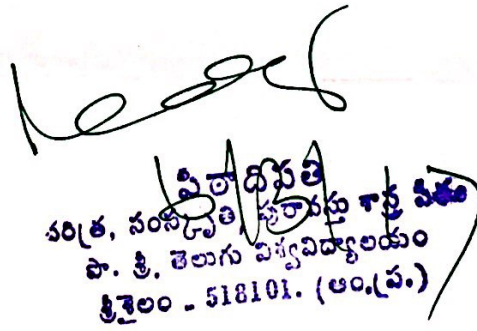 పీఠాధిపతి
చరిత్ర, సంస్కృతి, పురావస్తు శాస్త్ర పీఠం
పొ. శ్రీ. తెలుగు విశ్వవిద్యాలయం
శ్రీశైలం - 518101. (ఆం.ప్ర.)